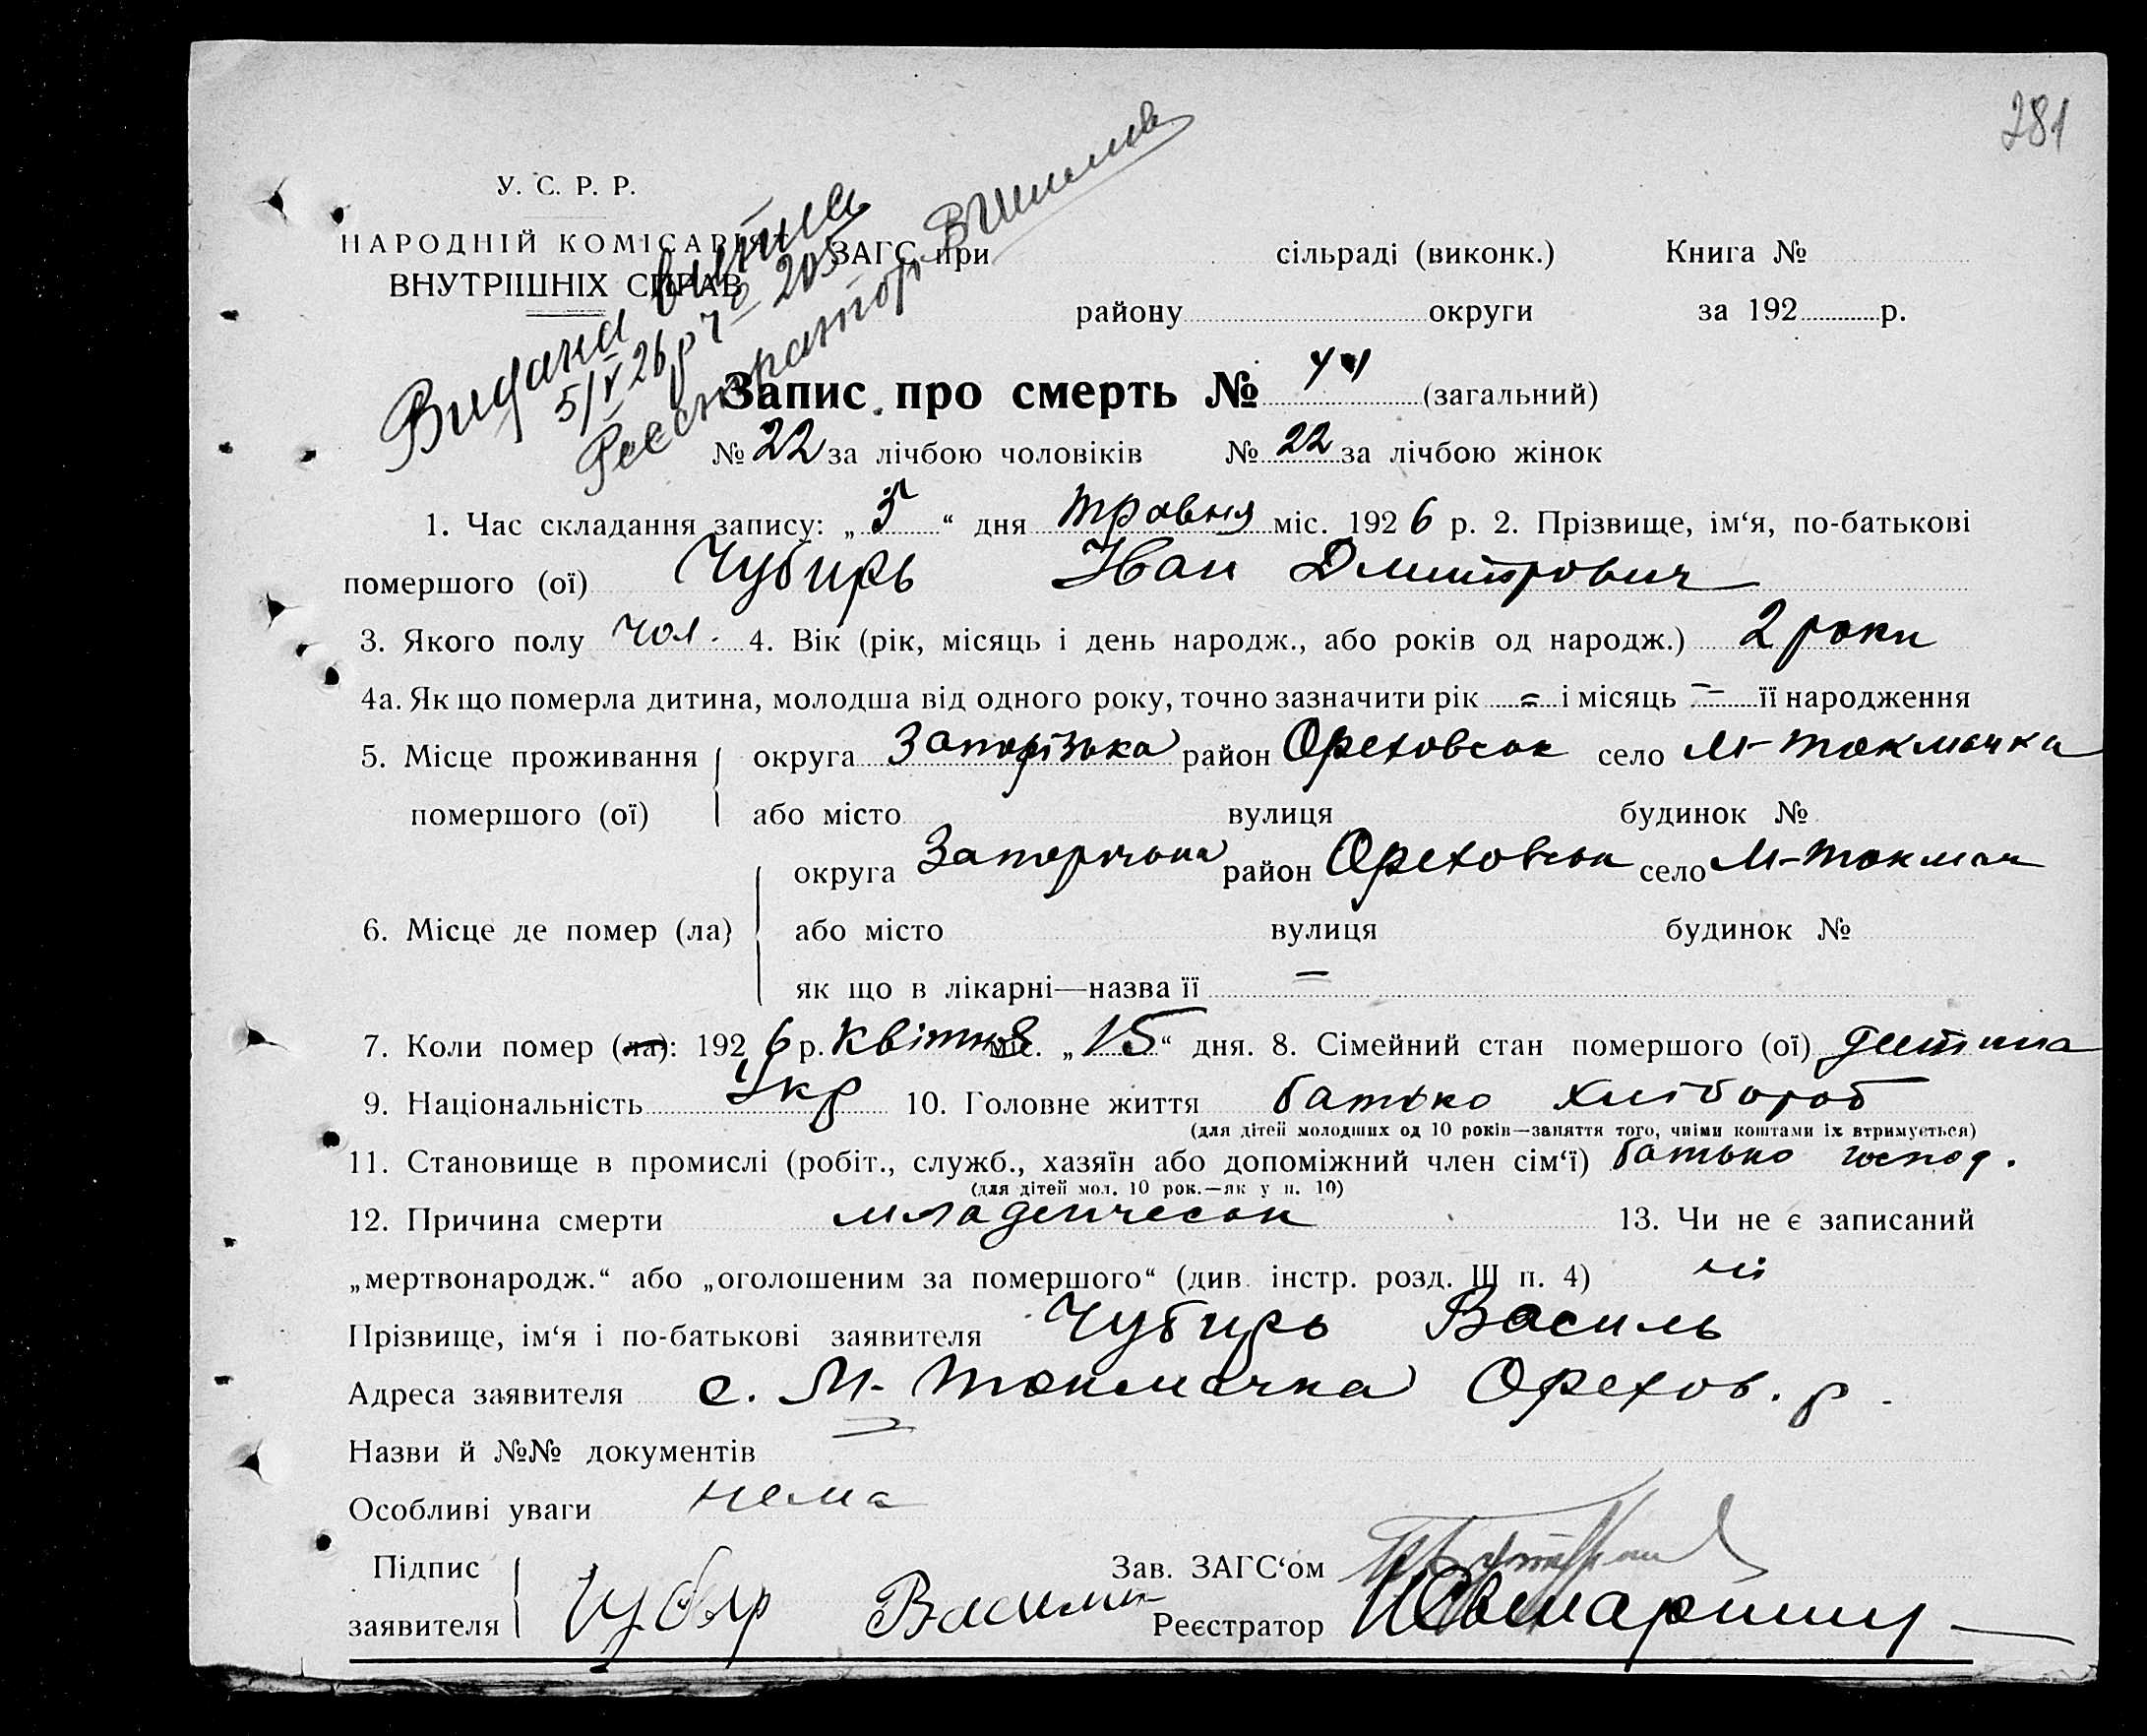 281
У. С. Р. Р.
НАРОДНІЙ КОМІСАРІЯТ
ВНУТРІШНІХ СПРАВ
Видана витись
5/V 26 р ч 205
Реєстратор
ЗАГС при сільраді (виконк.) Книга №
району округи за 192 р.
Запис про смерть № 44 (загальний)
№ 22 за лічбою чоловіків № 22 за лічбою жінок
1. Час складання запису: „5“ дня травня міс. 1926 р. 2. Прізвище, ім‘я, по-батькові
помершого (ої) Чубирь Іван Дмитрович
3. Якого полу чол. 4. Вік (рік, місяць і день народж., або років од народж.) 2 роки
4а. Як що померла дитина, молодша від одного року, точно зазначити рік = і місяць = її народження
5. Місце проживання округа Запорізька район Ореховськ село М-Токмачка
помершого (ої) або місто вулиця будинок №
округа Запорізька район Ореховськ село М-Токмач
6. Місце де помер (ла) або місто вулиця будинок №
як що в лікарні—назва її =
7. Коли помер (ла): 1926 р. Квітня міс. „15“ дня. 8. Сімейний стан помершого (ої) дитина
9. Національність Укр 10. Головне життя батько хлібороб
(для дітей молодших од 10 років—заняття того, чиїми коштами їх втримується)
11. Становище в промислі (робіт., служб., хазяїн або допоміжний член сім‘ї) батько господ.
(для дітей мол. 10 рок.—як у п. 10)
12. Причина смерти младенческ 13. Чи не є записаний
„мертвонародж.“ або „оголошеним за помершого“ (див. інстр. розд. III п. 4) ні
Прізвище, ім‘я і по-батькові заявителя Чубирь Василь
Адреса заявителя с. М-Токмачка Орехов. р.
Назви й №№ документів =
Особливі уваги нема
Підпис Зав. ЗАГС‘ом
заявителя Чубир Василь Реєстратор